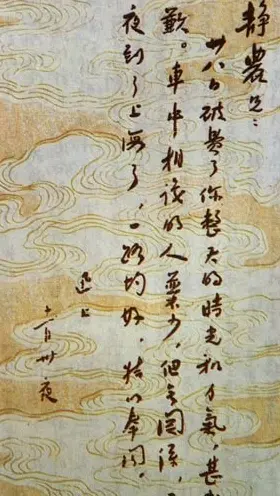 静農兄：
廿八日破費了你整天的時光和力氣，甚
歉。車中相識的人並不少，但無関係，
夜到了上海了，一路均好，特以奉聞，
迅上
十一月卅夜